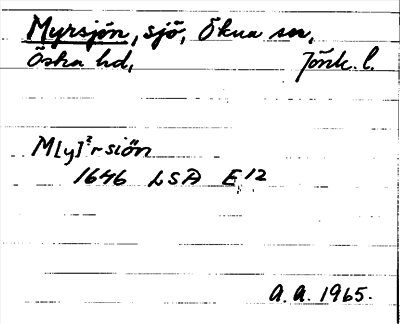 Myrsjön, sjö, Ökna sn,
Östra hd, Jönk. l.
M[y]²rsiön
1646 LSA E12
A.A. 1965.